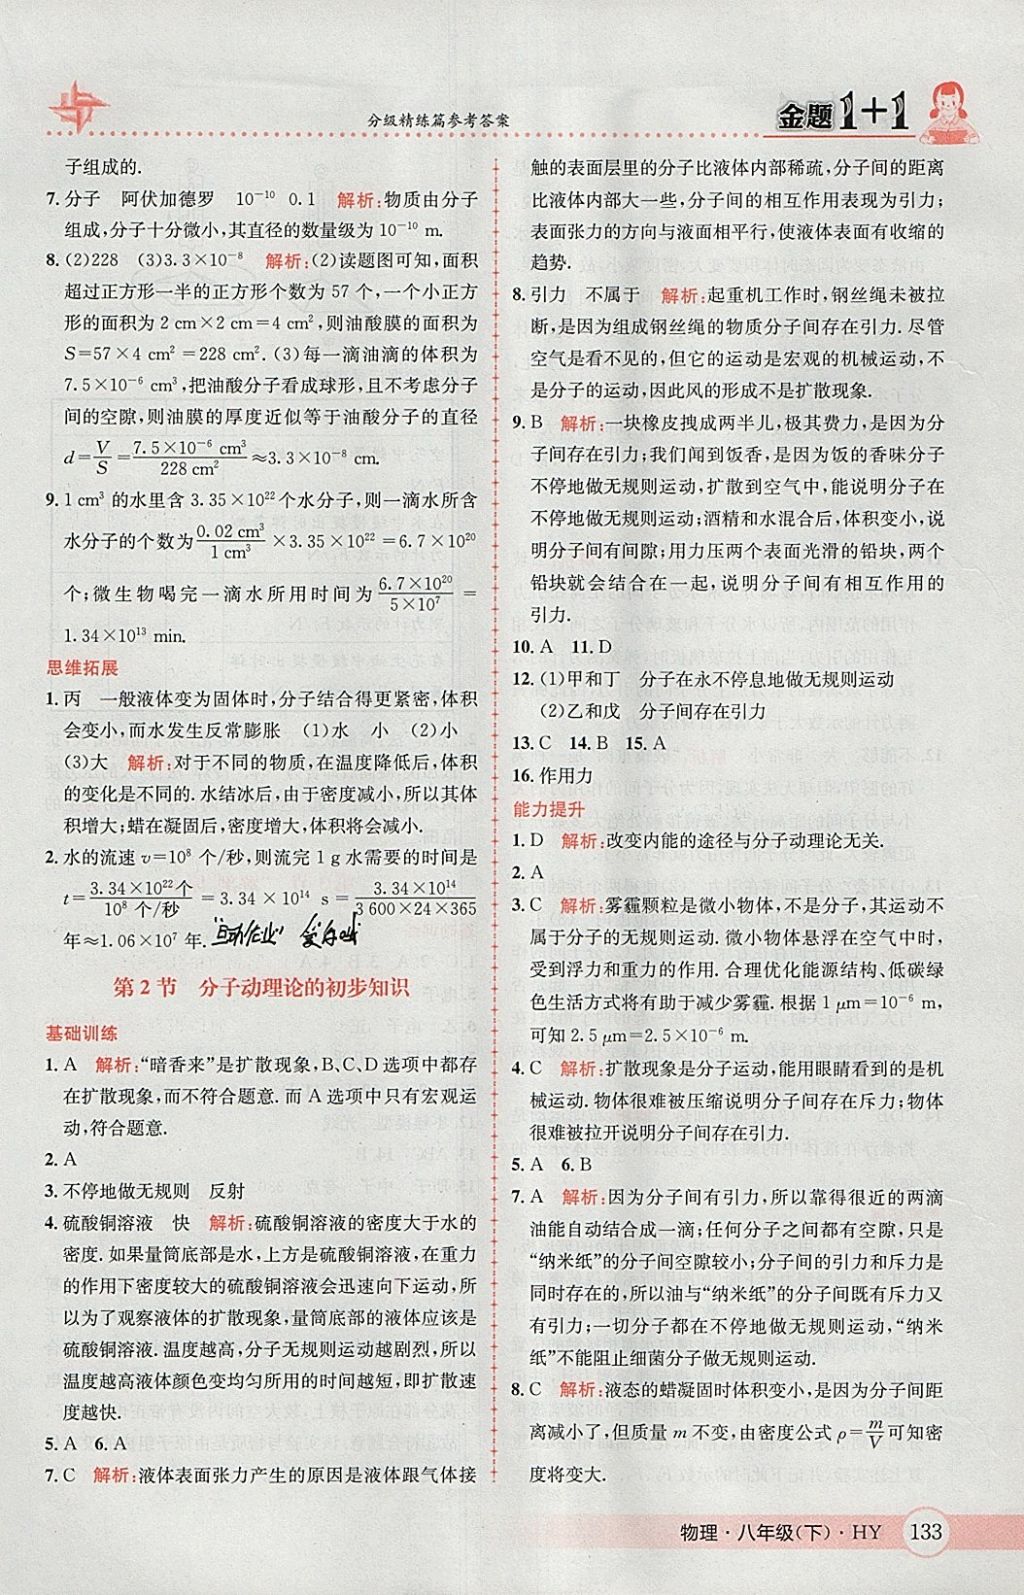 分级精练篇参考答案
金题1+1
子组成的.
7. 分子 阿伏加德罗 10⁻¹⁰ 0.1 解析:物质由分子
组成,分子十分微小,其直径的数量级为 10⁻¹⁰ m.
8. (2)228 (3)3.3×10⁻⁸ 解析:(2)读题图可知,面积
超过正方形一半的正方形个数为 57 个,一个小正方
形的面积为 2 cm×2 cm=4 cm²,则油酸膜的面积为
S=57×4 cm²=228 cm². (3)每一滴油滴的体积为
7.5×10⁻⁶ cm³,把油酸分子看成球形,且不考虑分子
间的空隙,则油膜的厚度近似等于油酸分子的直径
d=V/S=7.5×10⁻⁶ cm³/228 cm²≈3.3×10⁻⁸ cm.
9. 1 cm³ 的水里含 3.35×10²² 个水分子,则一滴水所含
水分子的个数为0.02 cm³/1 cm³×3.35×10²²=6.7×10²⁰
个;微生物喝完一滴水所用时间为6.7×10²⁰/5×10⁷=
1.34×10¹³ min.
思维拓展
1. 丙 一般液体变为固体时,分子结合得更紧密,体积
会变小,而水发生反常膨胀 (1)水 小 (2)小
(3)大 解析:对于不同的物质,在温度降低后,体积
的变化是不同的. 水结冰后,由于密度减小,所以其体
积增大;蜡在凝固后,密度增大,体积将会减小.
2. 水的流速 v=10⁸ 个/秒,则流完 1 g 水需要的时间是
t=3.34×10²²个/10⁸ 个/秒=3.34×10¹⁴ s=3.34×10¹⁴/3 600×24×365
年≈1.06×10⁷ 年.
第 2 节 分子动理论的初步知识
基础训练
1. A 解析:“暗香来”是扩散现象,B、C、D 选项中都存
在扩散现象,而不符合题意. 而 A 选项中只有宏观运
动,符合题意.
2. A
3. 不停地做无规则 反射
4. 硫酸铜溶液 快 解析:硫酸铜溶液的密度大于水的
密度. 如果量筒底部是水,上方是硫酸铜溶液,在重力
的作用下密度较大的硫酸铜溶液会迅速向下运动,所
以为了观察液体的扩散现象,量筒底部的液体应该是
硫酸铜溶液. 温度越高,分子无规则运动越剧烈,所以
温度越高液体颜色变均匀所用的时间越短,即扩散速
度越快.
5. A 6. A
7. C 解析:液体表面张力产生的原因是液体跟气体接
触的表面层里的分子比液体内部稀疏,分子间的距离
比液体内部大一些,分子间的相互作用表现为引力;
表面张力的方向与液面相平行,使液体表面有收缩的
趋势.
8. 引力 不属于 解析:起重机工作时,钢丝绳未被拉
断,是因为组成钢丝绳的物质分子间存在引力. 尽管
空气是看不见的,但它的运动是宏观的机械运动,不
是分子的运动,因此风的形成不是扩散现象.
9. B 解析:一块橡皮拽成两半儿,极其费力,是因为分
子间存在引力;我们闻到饭香,是因为饭的香味分子
不停地做无规则运动,扩散到空气中,能说明分子在
不停地做无规则运动;酒精和水混合后,体积变小,说
明分子间有间隙;用力压两个表面光滑的铅块,两个
铅块就会结合在一起,说明分子间有相互作用的
引力.
10. A 11. D
12. (1)甲和丁 分子在永不停息地做无规则运动
(2)乙和戊 分子间存在引力
13. C 14. B 15. A
16. 作用力
能力提升
1. D 解析:改变内能的途径与分子动理论无关.
2. A
3. C 解析:雾霾颗粒是微小物体,不是分子,其运动不
属于分子的无规则运动. 微小物体悬浮在空气中时,
受到浮力和重力的作用. 合理优化能源结构、低碳绿
色生活方式将有助于减少雾霾. 根据 1 μm=10⁻⁶ m,
可知 2.5 μm=2.5×10⁻⁶ m.
4. C 解析:扩散现象是分子运动,能用眼睛看到的是机
械运动. 物体很难被压缩说明分子间存在斥力;物体
很难被拉开说明分子间存在引力.
5. A 6. B
7. A 解析:因为分子间有引力,所以靠得很近的两滴
油能自动结合成一滴;任何分子之间都有空隙,只是
“纳米纸”的分子间空隙较小;分子间的引力和斥力是
同时存在的,所以油与“纳米纸”的分子间既有斥力又
有引力;一切分子都在不停地做无规则运动,“纳米
纸”不能阻止细菌分子做无规则运动.
8. C 解析:液态的蜡凝固时体积变小,是因为分子间距
离减小了,但质量 m 不变,由密度公式 ρ=m/V可知密
度将变大.
物理·八年级(下)·HY 133